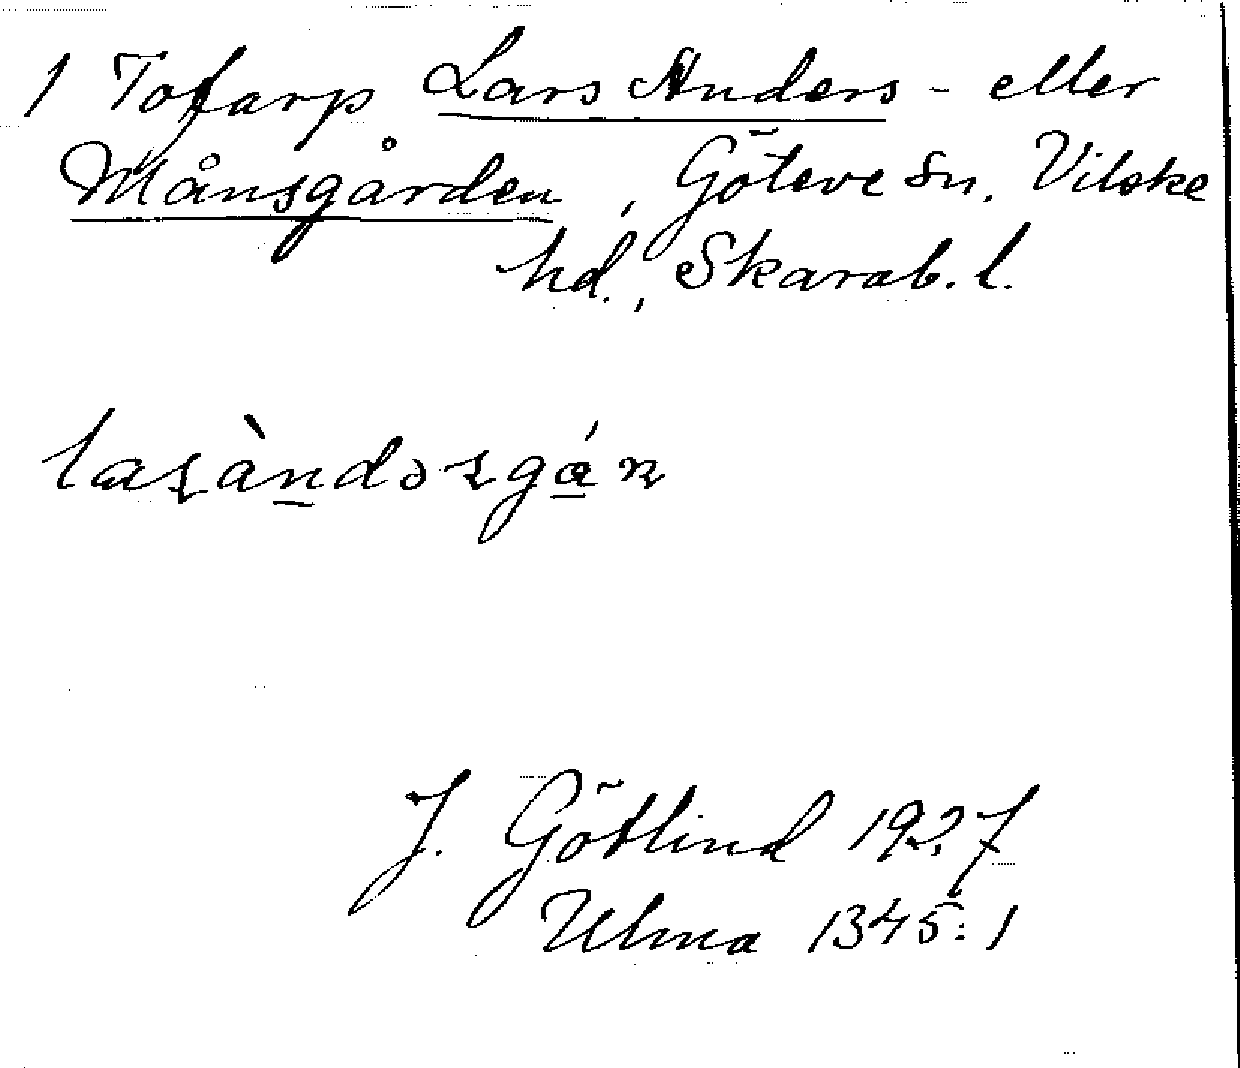 1 Tofarp Lars Anders- eller
Månsgården, Göteve sn. Vilske
hd., Skarab. l.
lasàndərgán
J. Götlind 1927
Ulma 1345:1